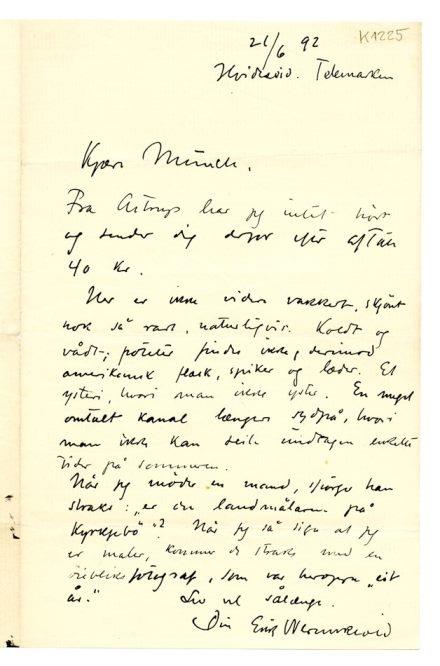 K1225
21/6 92
Hvideseid. Telemarken
Kjære Munch.
Fra Astrup har jeg intet hørt
og sender dig derfor efter aftale
40 Kr.
Her er ikke videre vakkert, skjönt
nok så rart, naturligvis. Koldt og
vådt; poteter findes ikke, derimod
amerikansk flesk, spiker og læder. Et
ysteri, hvori man ikke yster. En meget
omtalt kanal længere sydpå, hvori
man ikke kan seile undtagen enkelte
tider på sommeren.
Når jeg möder en mand, spörger han
straks: „er du landmålaren på
Kyrkjebö"? Når jeg så siger at jeg
er maler, kommer de straks med en
fotograf, som var heroppe „eit
år."
Lev vel sålænge.
Din Erik Werenskiold